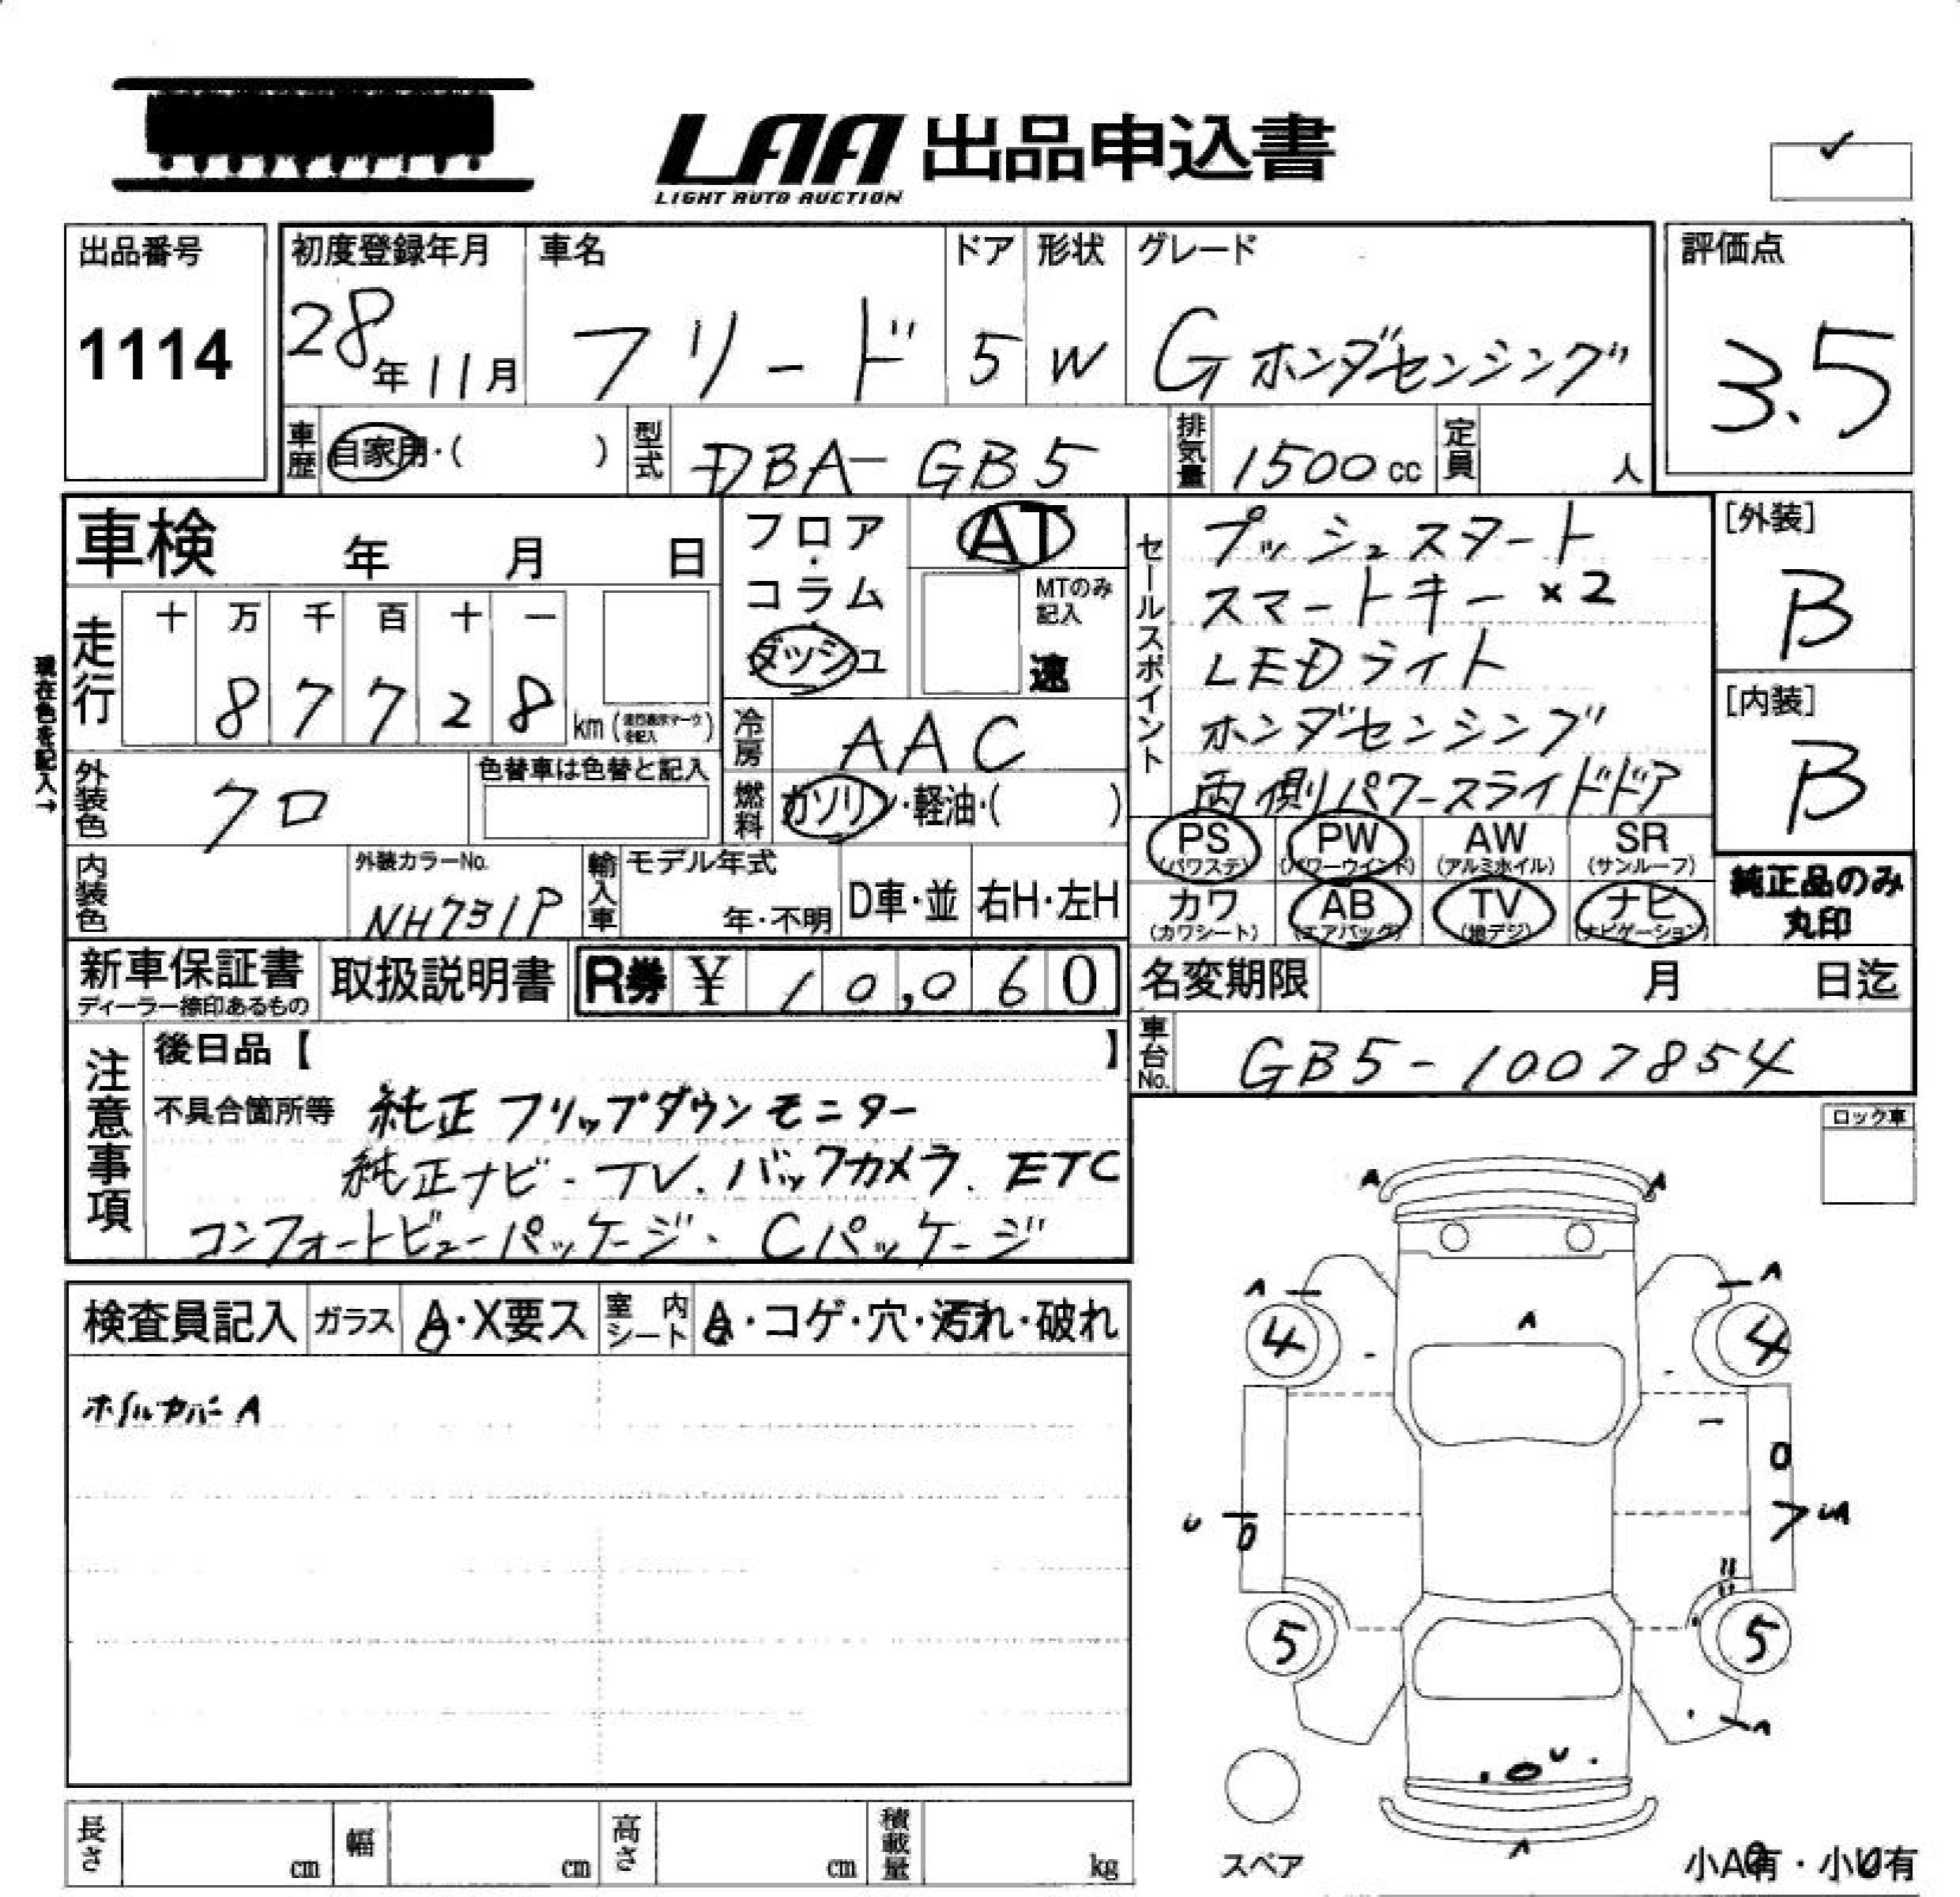 LAA 出品申込書
LIGHT AUTO AUCTION
出品番号 初度登録年月 車名 ドア 形状 グレード 評価点
1114 28年11月 フリード 5 W G ホンダセンシング 3.5
車歴 自家用・( ) 型式 DBA-GB5 排気量 1500cc 定員 人
車検 年 月 日
フロア・コラム・ダッシュ
AT
MTのみ記入
速
走行 十 万 千 百 十 一
8 7 7 2 8 km (走行表示マークを記入)
現在色を記入→
外装色 クロ
色替車は色替と記入
冷房 AAC
燃料 ガソリン・軽油・( )
内装色
外装カラーNo.
NH731P
輸入車 モデル年式
年・不明 D車・並 右H・左H
セールスポイント
プッシュスタート
スマートキー×2
LEDライト
ホンダセンシング
両側パワースライドドア
[外装]
B
[内装]
B
PS (パワステ) PW (パワーウインド) AW (アルミホイル) SR (サンルーフ)
カワ (カワシート) AB (エアバッグ) TV (地デジ) ナビ (ナビゲーション)
純正品のみ
丸印
新車保証書 取扱説明書 R券 ¥ 10,060
ディーラー捺印あるもの
名変期限 月 日迄
車台No. GB5-1007854
注意事項
後日品【 】
不具合箇所等 純正フリップダウンモニター
純正ナビ・TV.バックカメラ.ETC
コンフォートビューパッケージ・Cパッケージ
検査員記入 ガラス A・X要ス 室内シート A・コゲ・穴・汚れ・破れ
ホイルカバーA
ロック車
A A
A A
4 A 4
0
U 0 UA
5 5
A
U
A
スペア
小A有・小U有
長さ cm 幅 cm 高さ cm 積載量 kg